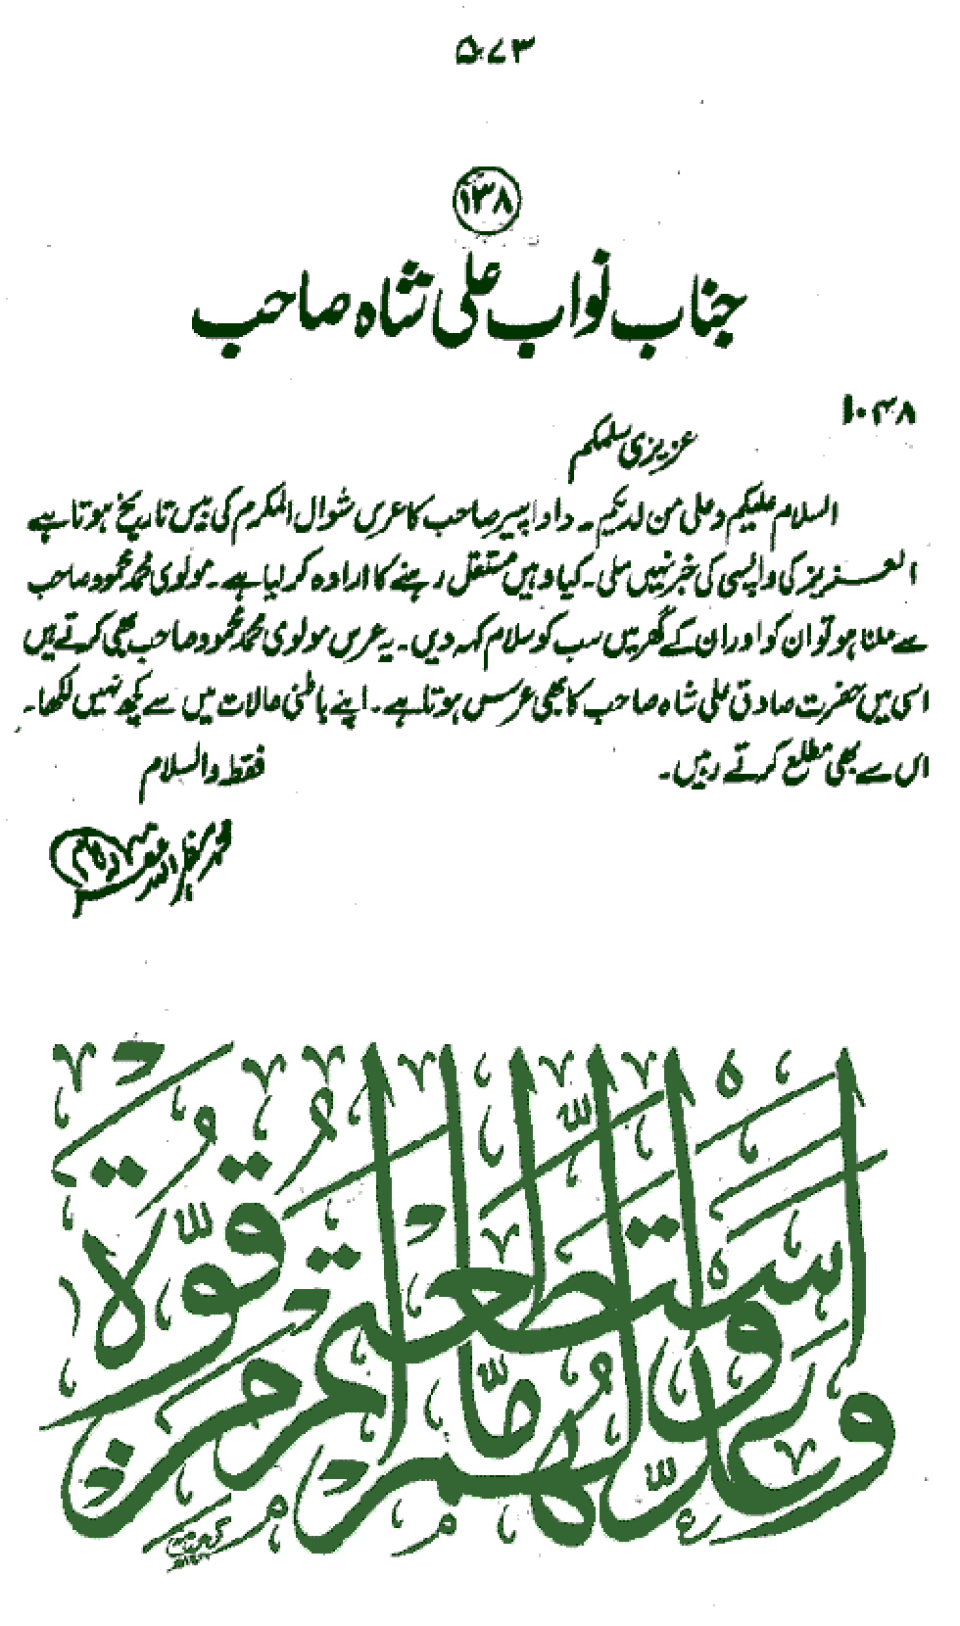 ۵۷۳
۱۳۸
جناب نواب علی شاہ صاحب
۱۰۴۸
عزیزی سلمکم
السلام علیکم وعلی من لدیکم ۔ دادا پیر صاحب کا عرس شوال المکرم کی بیس تاریخ ہوتا ہے
العزیز کی واپسی کی خبر نہیں ملی ۔ کیا وہیں مستقل رہنے کا ارادہ کر لیا ہے ۔ مولوی محمد محمود صاحب
سے ملنا ہو تو ان کو اور ان کے گھر میں سب کو سلام کہہ دیں ۔ یہ عرس مولوی محمد محمود صاحب بھی کرتے ہیں
اسی میں حضرت صادق علی شاہ صاحب کا بھی عرس ہوتا ہے ۔ اپنے باطنی حالات میں سے کچھ نہیں لکھا ۔
اس سے بھی مطلع کرتے رہیں ۔ فقط والسلام
محمد مظہر اللہ
وَأَعِدُّوا لَهُمْ مَّا اسْتَطَعْتُمْ مِنْ قُوَّةٍ